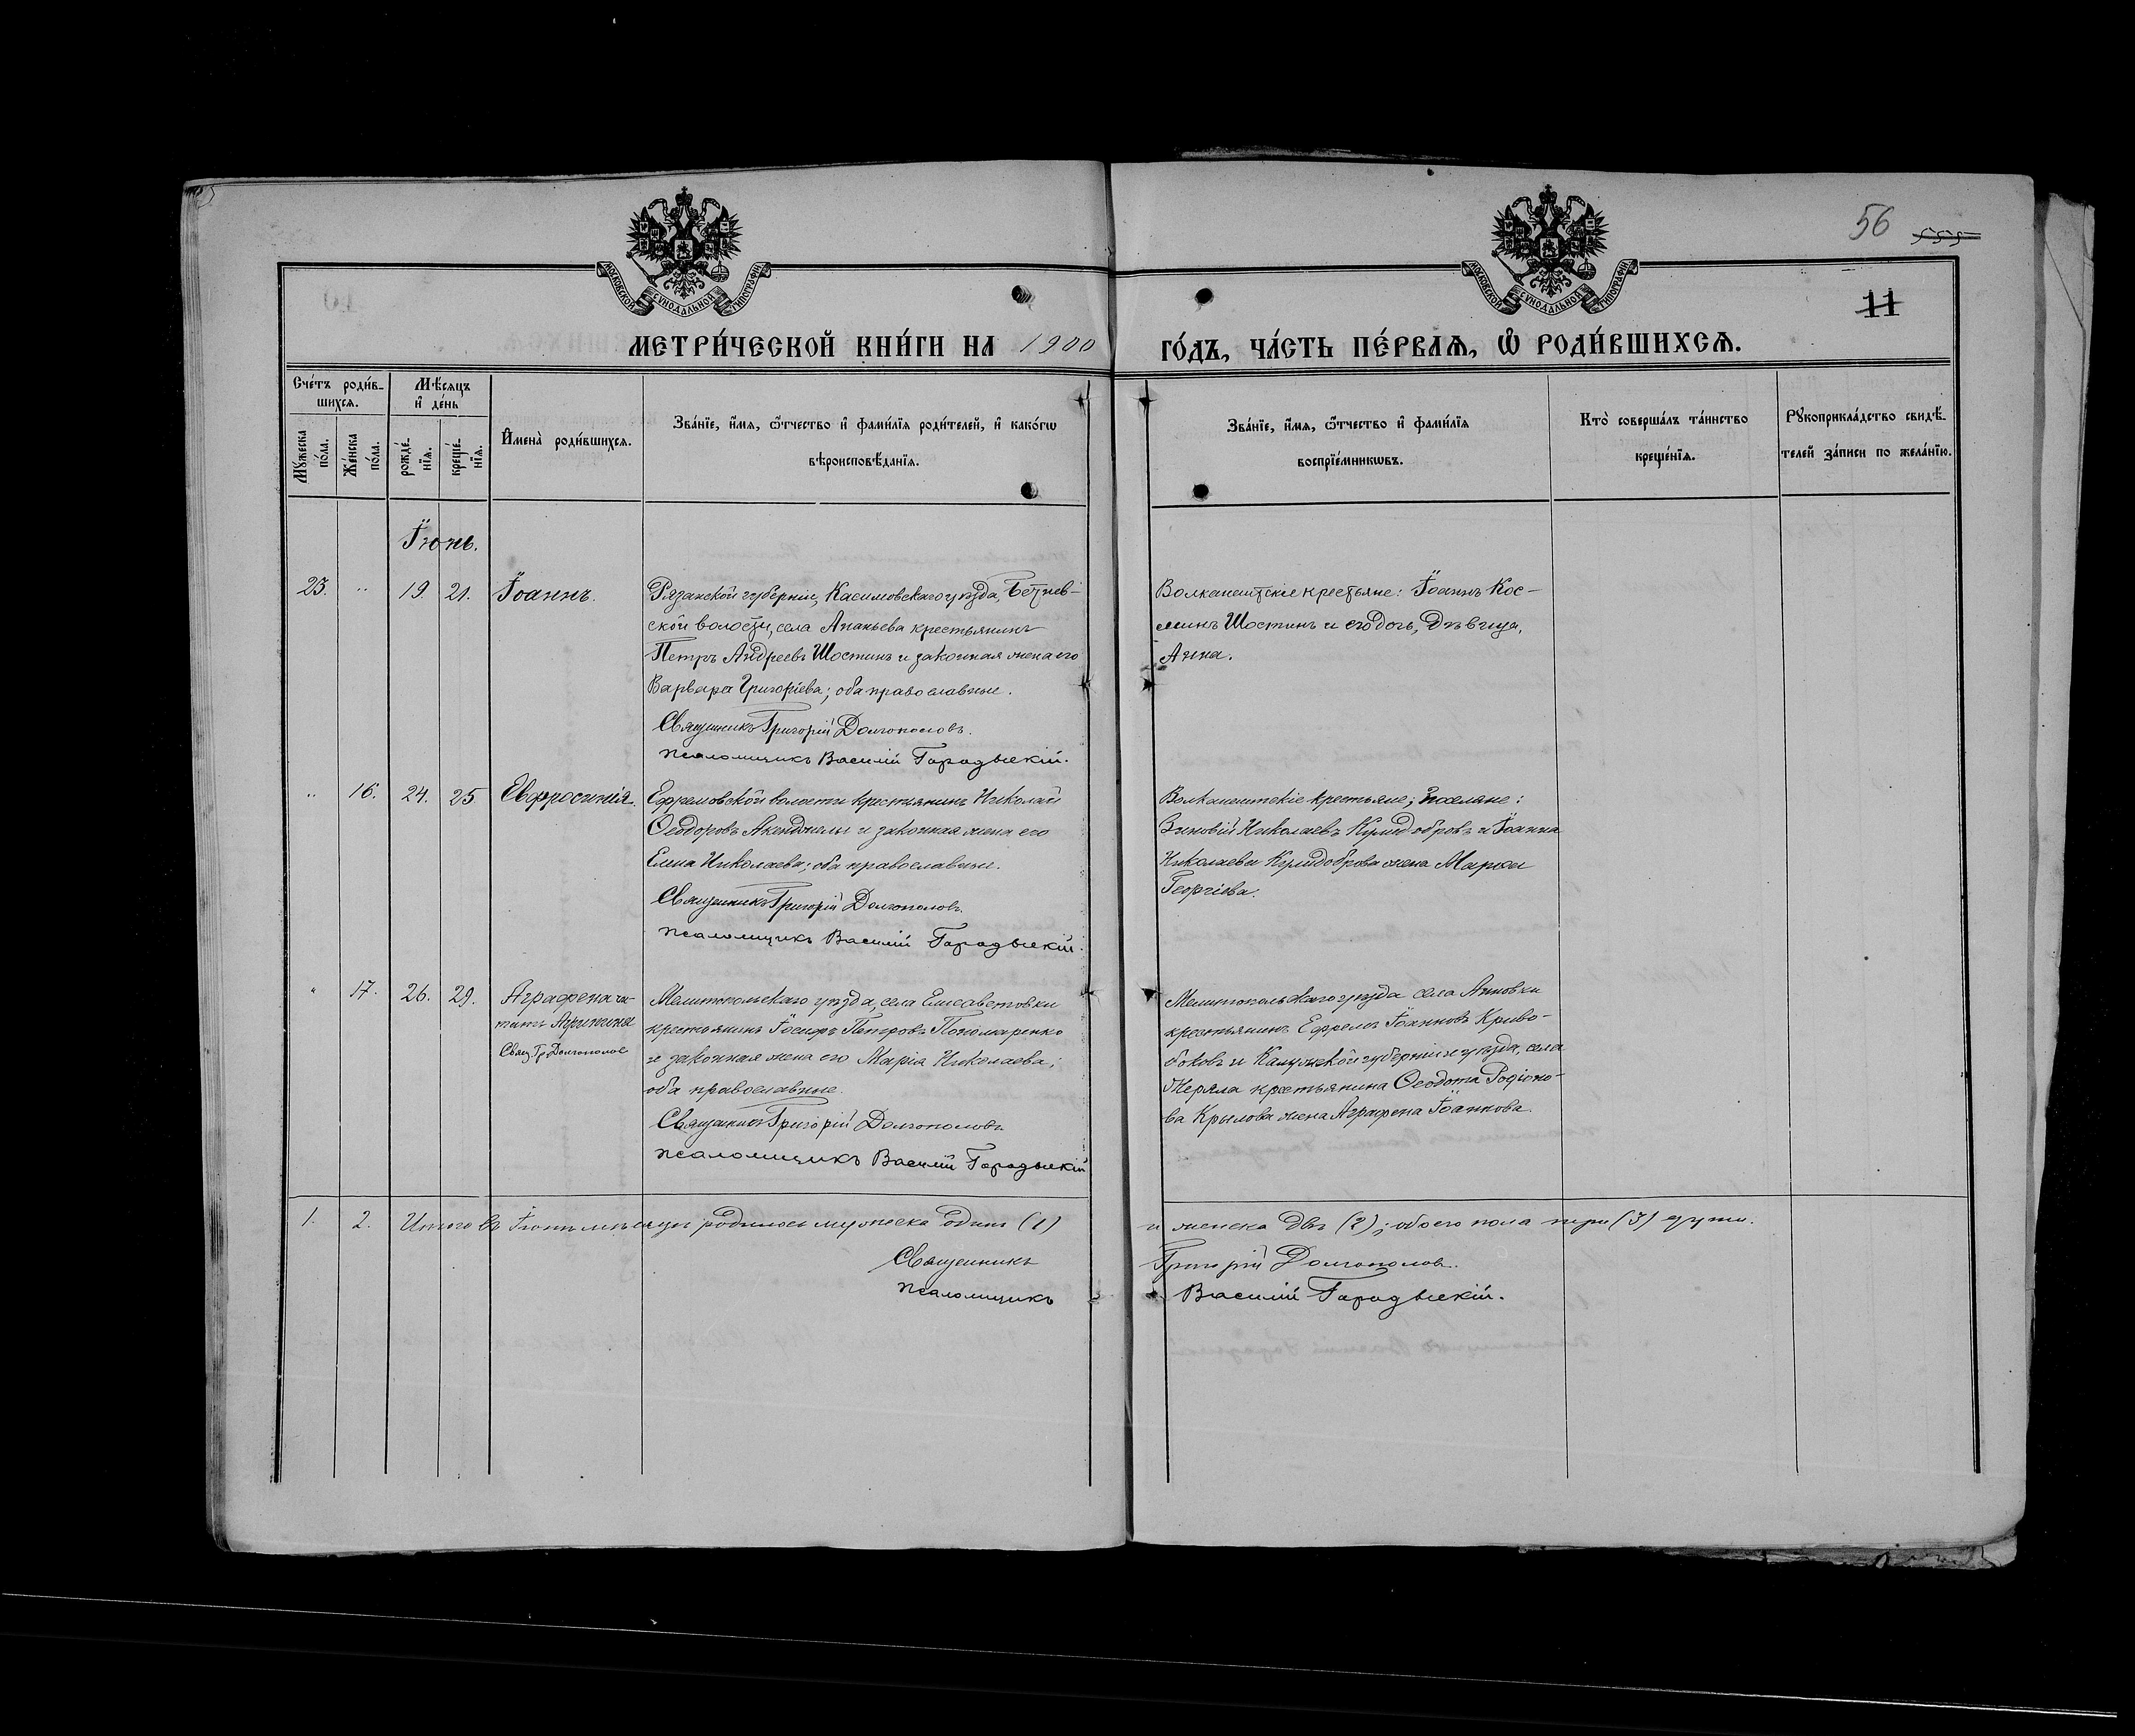 56 555
11
МОСКОВСКОЙ СѴНОДАЛЬНОЙ ТИПОГРАФІИ
МОСКОВСКОЙ СѴНОДАЛЬНОЙ ТИПОГРАФІИ
МЕТРИ́ЧЕСКОЙ КНИ́ГИ НА 1900 ГО́ДЪ, ЧА́СТЬ ПЕ́РВАѦ, Ѽ РОДИ́ВШИХСѦ.
Сче́тъ роди́в-
шихсѧ.
Мꙋ́жеска по́ла.
Же́нска по́ла.
Мѣ́сѧцъ и҆ де́нь
рожде́-нїѧ.
креще́-нїѧ.
И҆мена̀ роди́вшихсѧ.
Зва́нїе, и҆́мѧ, ѻ҆́тчество и҆ фами́лїѧ роди́телей, и҆ како́гѡ
вѣроисповѣ́данїѧ.
Зва́нїе, и҆́мѧ, ѻ҆́тчество и҆ фами́лїѧ
воспрїе́мникѡвъ.
Кто̀ соверша́лъ та́инство
креще́нїѧ.
Рꙋкоприкла́дство свидѣ́-
телей за́писи по жела́нїю.
Іюнь.
23. " 19. 21. Іоаннъ.
Рязанской губерніи, Касимовскаго уѣзда,
ской волости, села Ананьева крестьянинъ
Петръ Андреевъ Шостинъ и законная жена его
Варвара Григоріева; оба православные.
Священникъ Григорій Долгополовъ.
Псаломщикъ Василій Городыскій.
Волканештскіе крестьяне: Іоаннъ Кос-
минъ Шостинъ и его дочь, дѣвица,
Анна.
" 16. 24. 25 Евфросинія.
Ефремовской волости крестьянинъ Николай
Ѳеодоровъ и законная жена его
Елена Николаева; оба православные.
Священникъ Григорій Долгополовъ.
Псаломщикъ Василій Городыскій.
Волканештскіе крестьяне; поселяне:
Зиновій Николаевъ и Іоанна
Николаева жена Марѳа
Георгіева.
" 17. 26. 29. Аграфена чи-
тать Агрипина
Свящ. Гр. Долгополов
Мелитопольскаго уѣзда, села Елисаветовки
крестьянинъ Іосифъ Петровъ Пономаренко
и законная жена его Марія Николаева;
оба православные.
Священникъ Григорій Долгополовъ
Псаломщикъ Василій Городыскій
Мелитопольскаго уѣзда села Анновки
крестьянинъ Ефремъ Іоанновъ Криво-
боковъ и Калужской губерніи и уѣзда, села
Жерела крестьянина Ѳеодота Родіоно-
ва Крылова жена Аграфена Іоаннова.
1. 2. Итого въ Іюнѣ мѣсяцѣ родилось мужеска одинъ (1) и женска двѣ (2); обоего пола три (3) души.
Священникъ Григорій Долгополов.
Псаломщикъ Василій Городыскій.